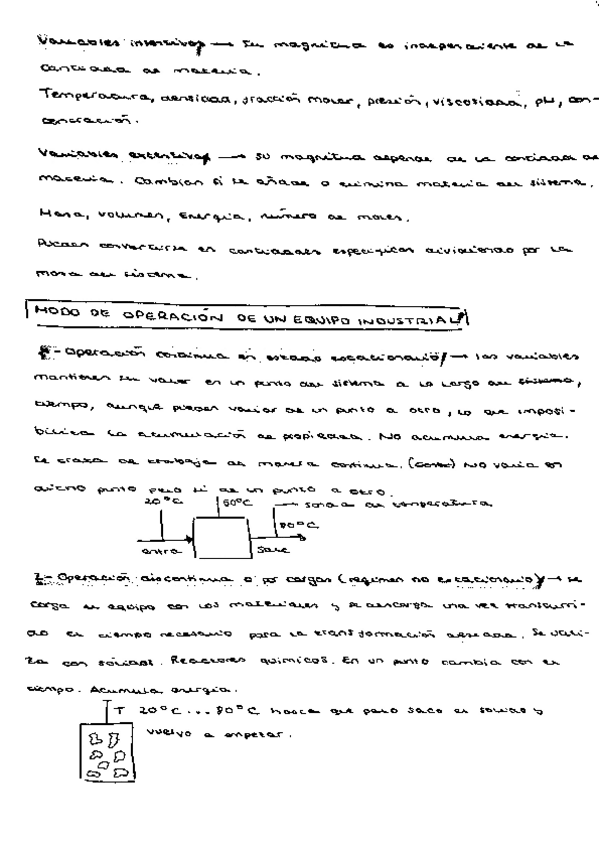 Variables intensivas → Su magnitud es independiente de la
cantidad de materia.
Temperatura, densidad, fracción molar, presión, viscosidad, pH, con-
centración.
Variables extensivas → su magnitud depende de la cantidad de
materia. Cambian si se añade o elimina materia del sistema.
Masa, volumen, energía, número de moles.
Pueden convertirse en cantidades específicas dividiendo por la
masa del sistema.
MODO DE OPERACIÓN DE UN EQUIPO INDUSTRIAL
1- Operación continua en estado estacionario → las variables
mantienen su valor en un punto del sistema a lo largo del sistema,
tiempo, aunque pueden variar de un punto a otro, lo que imposi-
bilita la acumulación de propiedad. No acumula energía.
Se trata de trabajar de manera continua. No varía en
dicho punto pero sí de un punto a otro.
20°C 50°C → sonda de temperatura
80°C
entra sale
2- Operación discontinua o por cargas (régimen no estacionario) → se
carga el equipo con los materiales y se descarga una vez transcurri-
do el tiempo necesario para la transformación deseada. Se utili-
za con sólidos. Reactores químicos. En un punto cambia con el
tiempo. Acumula energía.
T 20°C ... 80°C hasta que paro saco el sólido y
vuelvo a empezar.